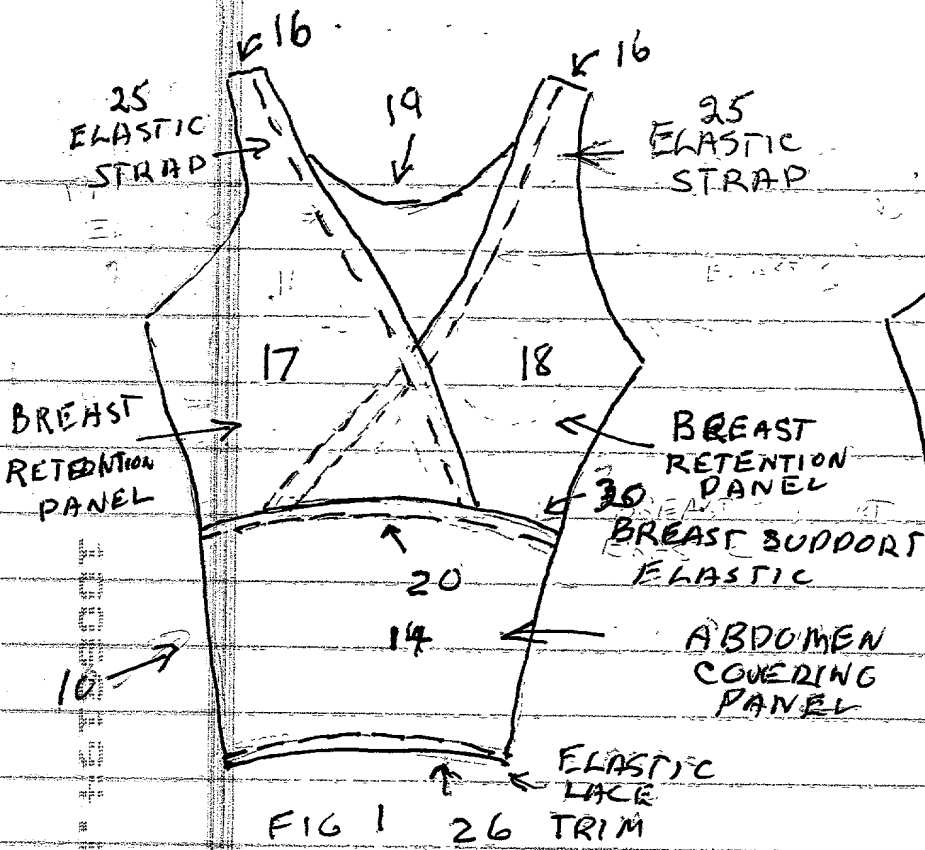 16
16
25
ELASTIC
STRAP
19
25
ELASTIC
STRAP
17
18
BREAST
RETENTION
PANEL
BREAST
RETENTION
PANEL
30
BREAST SUPPORT
ELASTIC
20
14
ABDOMEN
COVERING
PANEL
10
ELASTIC
LACE
TRIM
26
FIG 1